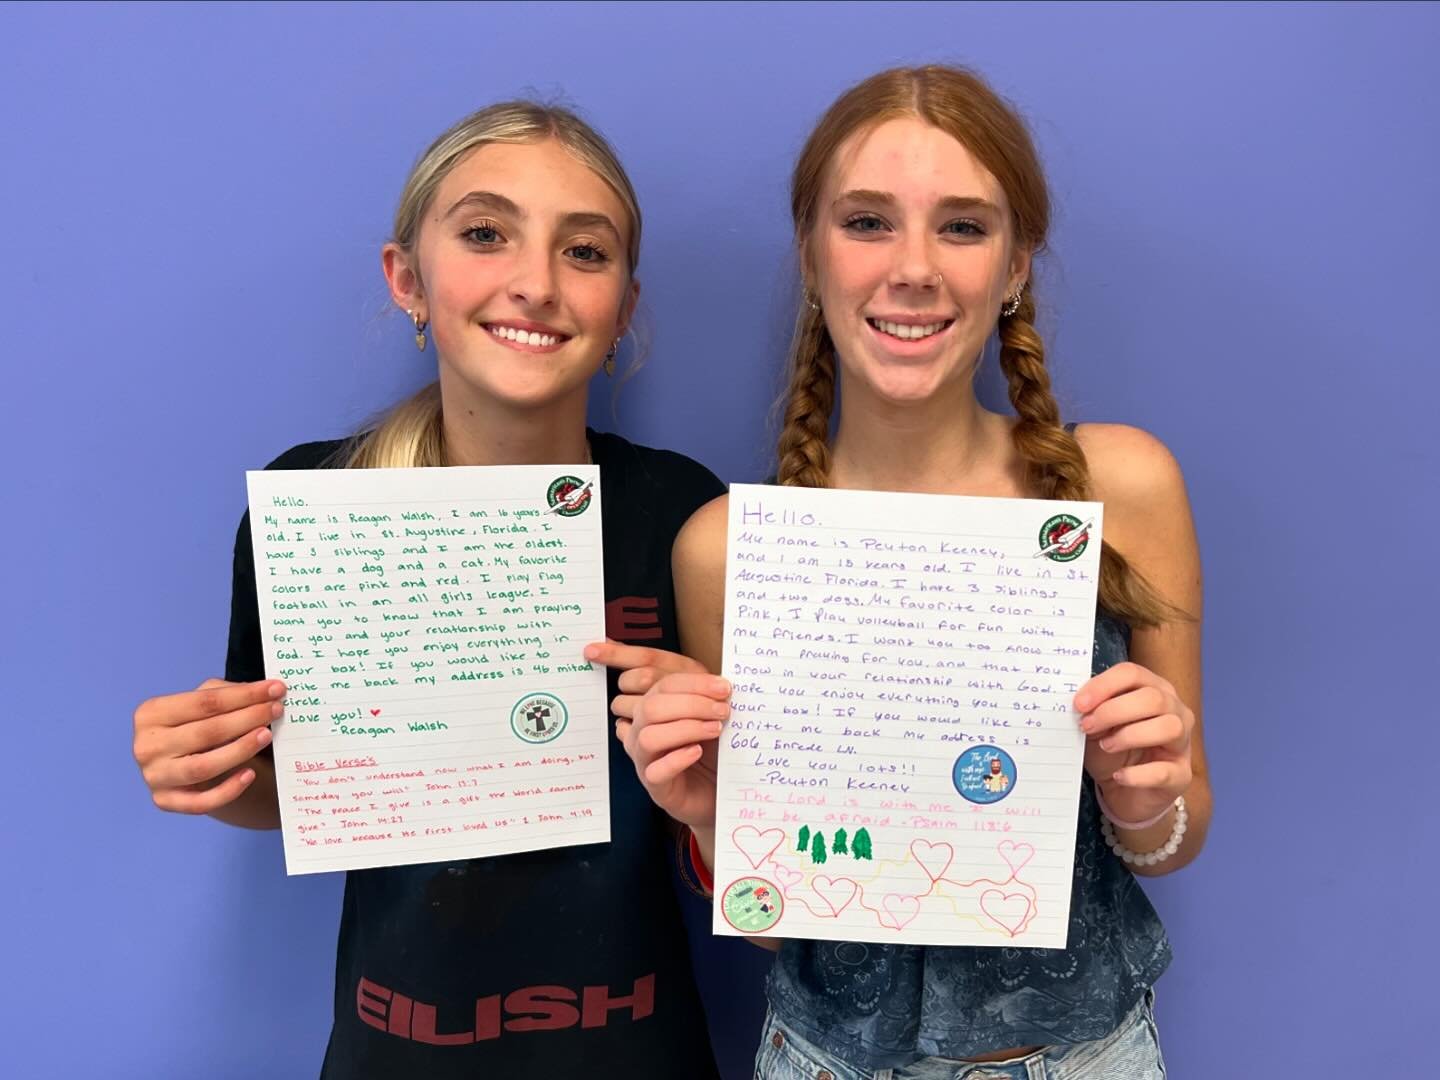 Hello.
My name is Reagan Walsh, I am 16 years
old. I live in St. Augustine, Florida. I
have 3 siblings and I am the oldest.
I have a dog and a cat. My favorite
colors are pink and red. I play flag
football in an all girls league. I
want you to know that I am praying
for you and your relationship with
God. I hope you enjoy everything in
your box! If you would like to
write me back my address is 46 mitad
circle.
Love you! ❤
-Reagan Walsh
WE LOVE BECAUSE
HE FIRST LOVED US
Bible Verse's
"You don't understand now what I am doing, but
someday you will" John 13:7
"The peace I give is a gift the world cannot
give" John 14:27
"We love because He first loved us" 1 John 4:19
Hello.
My name is Peyton Keeney,
and I am 15 years old. I live in St.
Augustine Florida. I have 3 siblings
and two dogs. My favorite color is
Pink, I play volleyball for fun with
my friends. I want you too know that
I am praying for you, and that you
grow in your relationship with God. I
hope you enjoy everything you get in
your box! If you would like to
write me back my address is
606 Enrede LN.
Love you lots!!
-Peyton Keeney
The Lord is
with me;
The Lord is with me I will
not be afraid -Psalm 118:6
EILISH